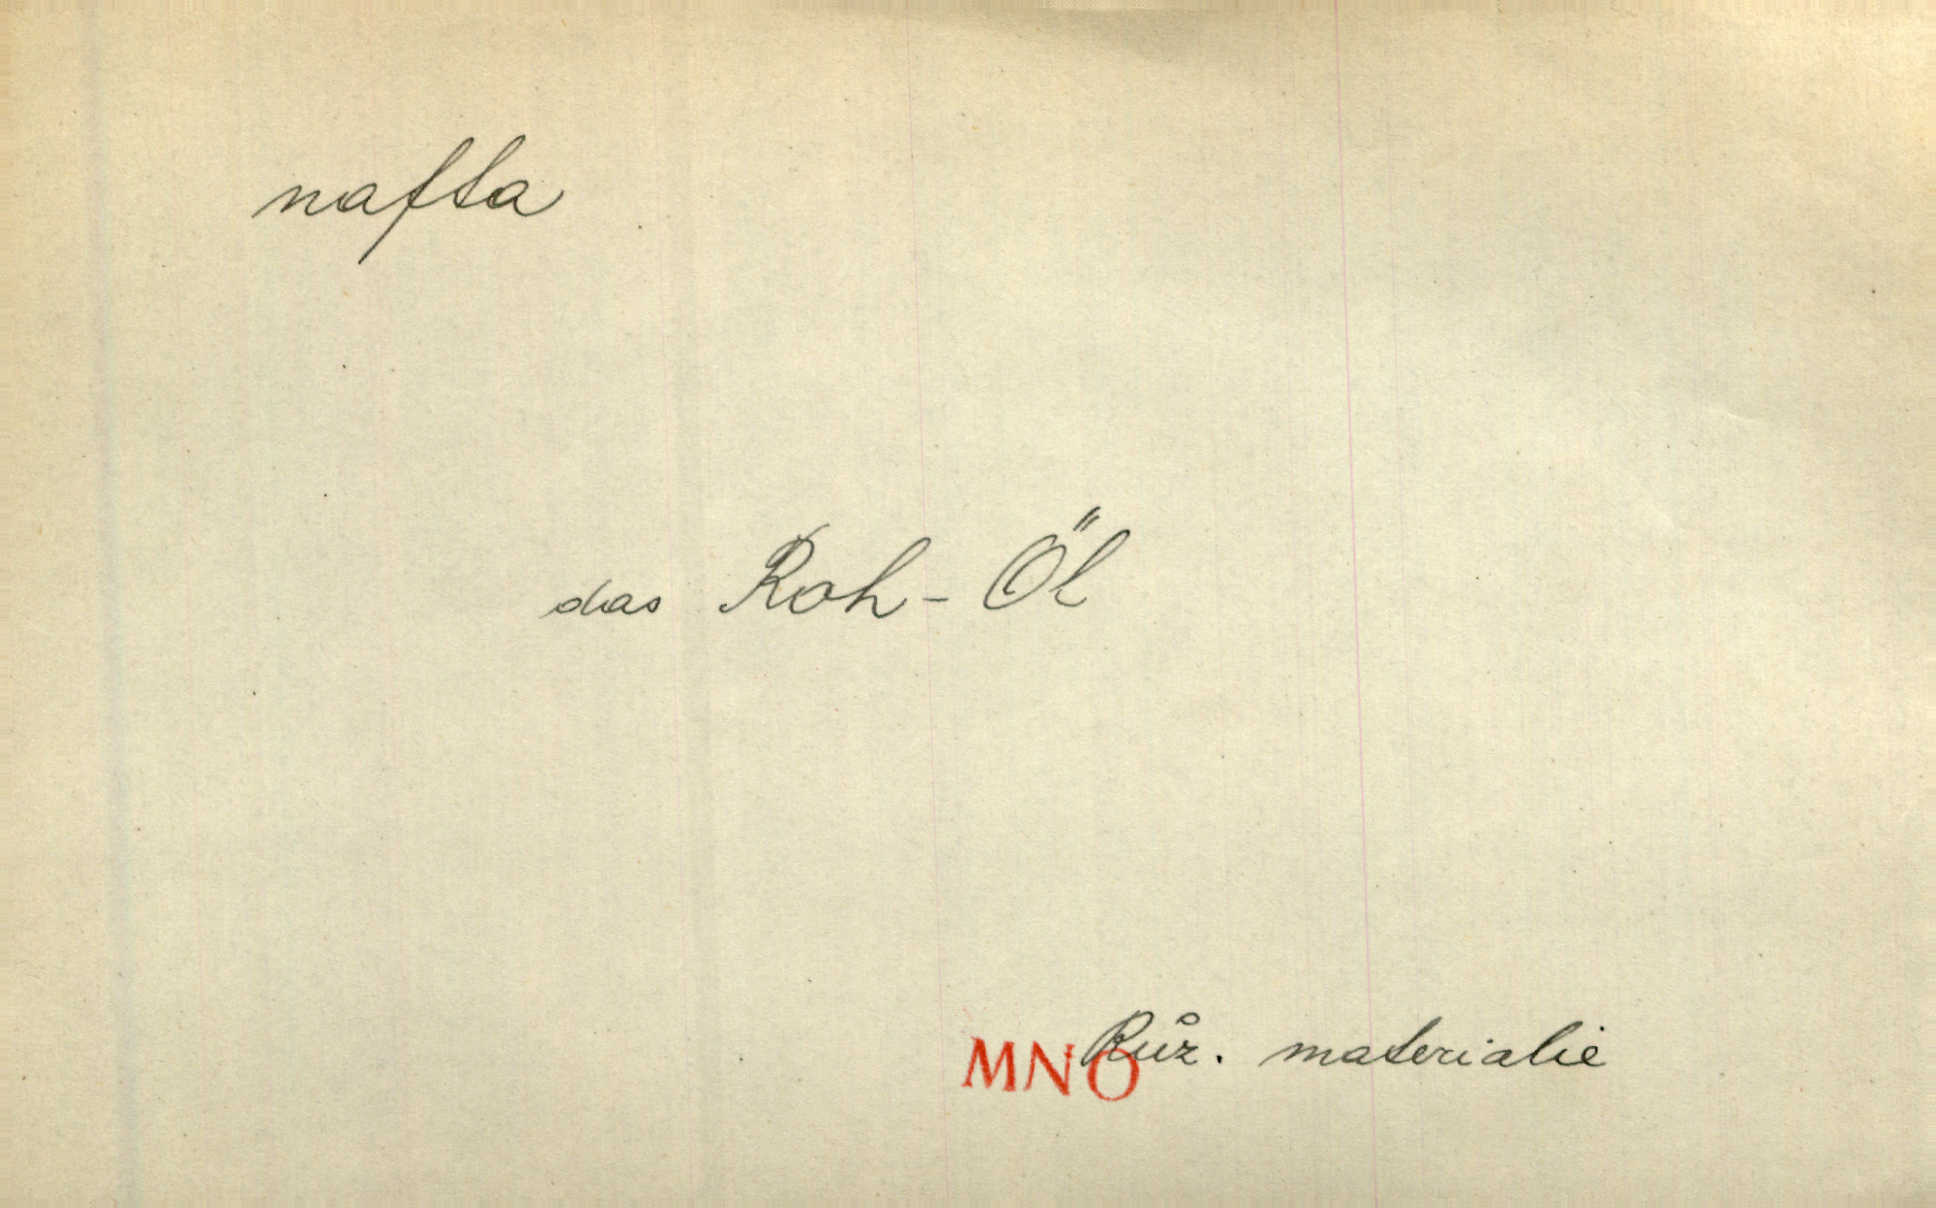 nafta
das Roh - Öl
MNO Růz. materialie